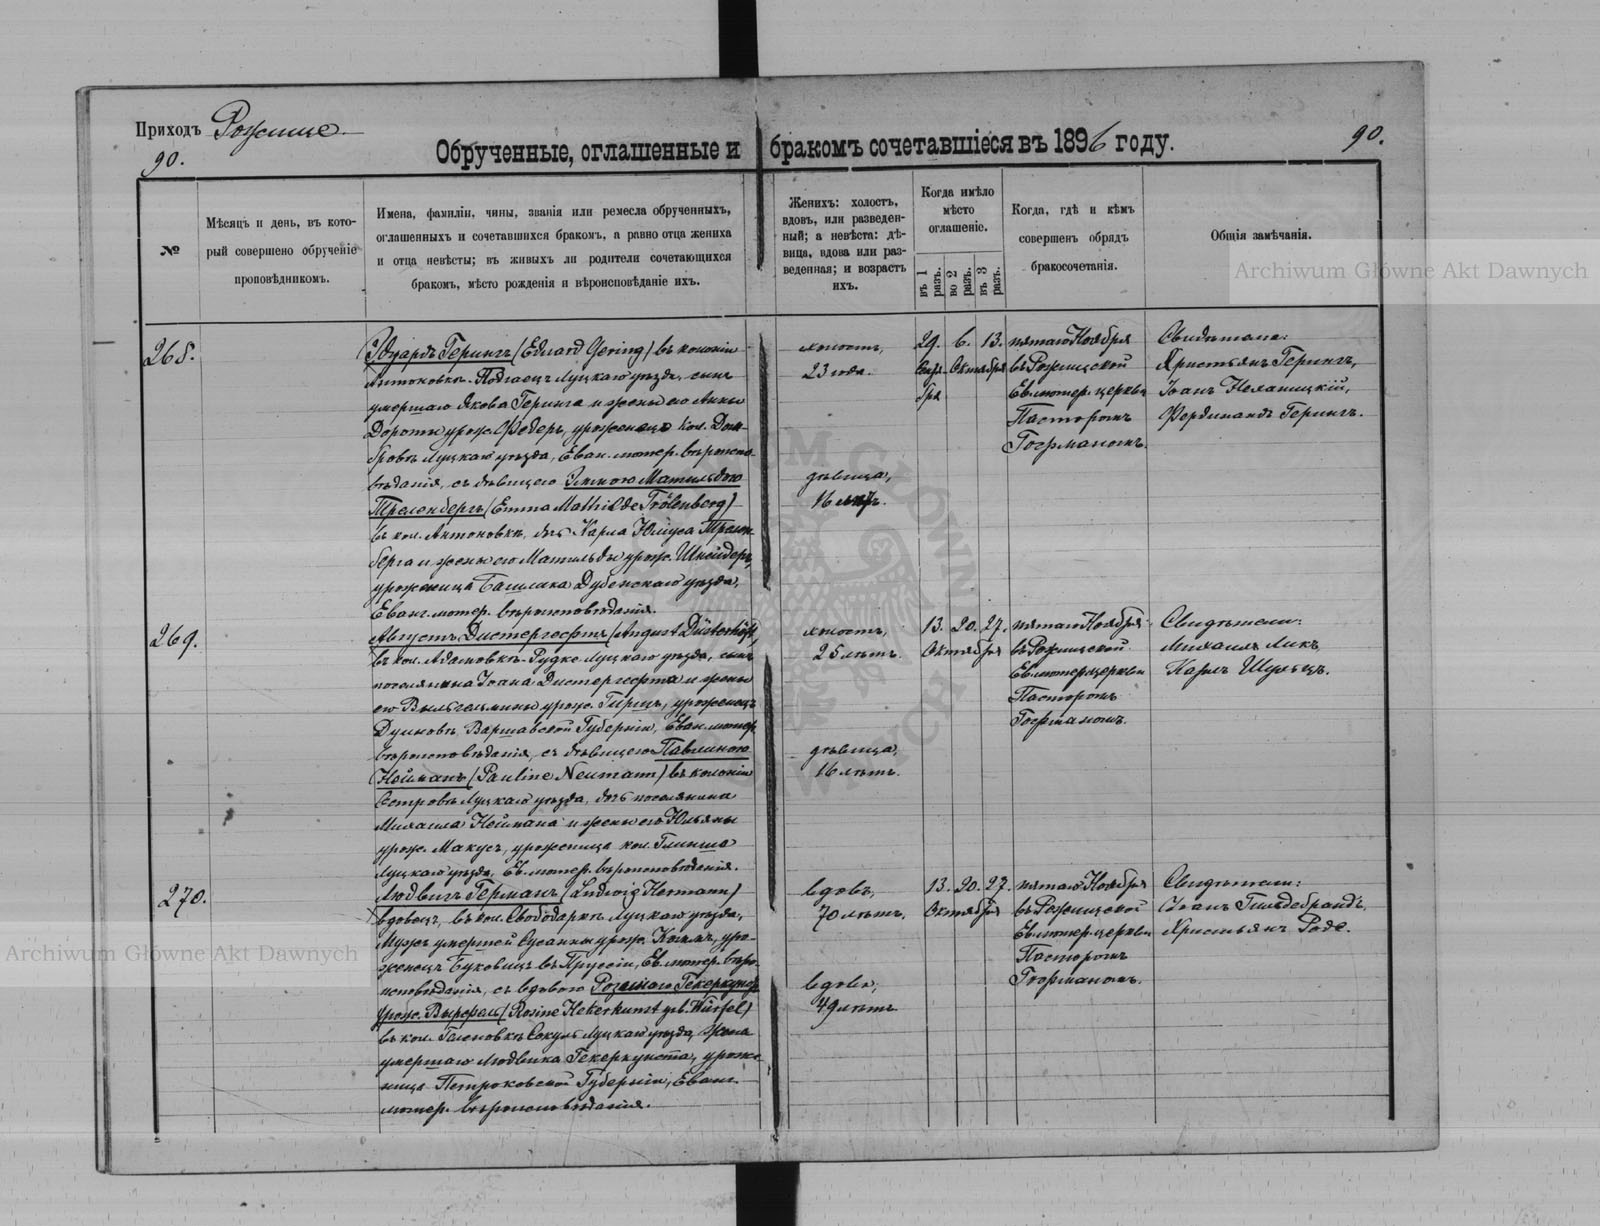 Приходъ Рожище
90.
Обрученные, оглашенные и бракомъ сочетавшіеся въ 1896 году.
90.
№
Мѣсяцъ и день, въ кото-
рый совершено обрученіе
проповѣдникомъ.
Имена, фамиліи, чины, званія или ремесла обрученныхъ,
оглашенныхъ и сочетавшихся бракомъ, а равно отца жениха
и отца невѣсты; въ живыхъ ли родители сочетающихся
бракомъ, мѣсто рожденія и вѣроисповѣданіе ихъ.
Женихъ: холостъ,
вдовъ, или разведен-
ный; а невѣста: дѣ-
вица, вдова или раз-
веденная; и возрастъ
ихъ.
Когда имѣло
мѣсто
оглашеніе.
въ 1 разъ.
во 2 разъ.
въ 3 разъ.
Когда, гдѣ и кѣмъ
совершенъ обрядъ
бракосочетанія.
Общія замѣчанія.
Archiwum Główne Akt Dawnych
268.
Эдуардъ Герингъ (Eduard Gering) въ колоніи
Антоновкѣ-Подгаецъ Луцкаго уѣзда, сынъ
умершаго Якова Геринга и жены его Анны
Доротеи урож. Федеръ, уроженецъ кол. Дом-
бровъ Луцкаго уѣзда, Еван. лютер. вѣроиспо-
вѣданія, съ дѣвицею Эммою Матильдою
Треленбергъ (Emma Mathilde Trölenberg)
въ кол. Антоновкѣ, дочь Карла Юлиуса Трелен-
берга и жены его Матильды урож. Шнейдеръ,
уроженица Башлака Дубенскаго уѣзда,
Еванг. лютер. вѣроисповѣданія.
холостъ,
23 года.
дѣвица,
16 лѣтъ.
29. 6. 13.
Сентя- Октября
бря
пятаго Ноября
въ Рожищской
Ев. лютер. церкви
Пасторомъ
Гофманомъ.
Свидѣтели:
Христьянъ Герингъ,
Іоанъ
Фердинандъ Герингъ.
269.
Августъ Дистергефтъ (August Düsterhöft)
въ кол. Адамовкѣ-Рудкѣ Луцкаго уѣзда, сынъ
поселянина Іоана Дистергефта и жены
его Вильгельмины урож. Гиршъ, уроженецъ
Варшавской Губерніи, Еван. лютер.
вѣроисповѣданія, съ дѣвицею Павлиною
Нейманъ (Pauline Neumann) въ колоніи
Островъ Луцкаго уѣзда, дочь поселянина
Михаила Неймана и жены его Юльяны
урож. Макусъ, уроженица кол. Глинша
Луцкаго уѣзда, Ев. лютер. вѣроисповѣданія.
холостъ,
25 лѣтъ.
дѣвица,
16 лѣтъ.
13. 20. 27.
Октября
пятаго Ноября
въ Рожищской
Ев. лютер. церкви
Пасторомъ
Гофманомъ.
Свидѣтели:
Михаилъ Ликъ,
Карлъ Шульцъ.
270.
Людвигъ Германъ (Ludwig Hermann)
вдовецъ, въ кол. Свободаркѣ Луцкаго уѣзда,
Мужъ умершей Сусанны урож. уро-
женецъ Буковицъ въ Пруссіи, Ев. лютер. вѣро-
исповѣданія, съ вдовою Розиною Гекеркунстъ
урож. Вирфель (Rosine Hekerkunst geb. Würfel)
въ кол. Геленовкѣ Луцкаго уѣзда, жена
умершаго Людвика Гекеркунста, уроже-
ница Петроковской Губерніи, Еванг.
лютер. вѣроисповѣданія.
вдовъ,
70 лѣтъ.
вдова,
49 лѣтъ.
13. 20. 27.
Октября
пятаго Ноября
въ Рожищской
Ев. лютер. церкви
Пасторомъ
Гофманомъ.
Свидѣтели:
Іоанъ Гильдебрандъ,
Христьянъ Роде.
Archiwum Główne Akt Dawnych